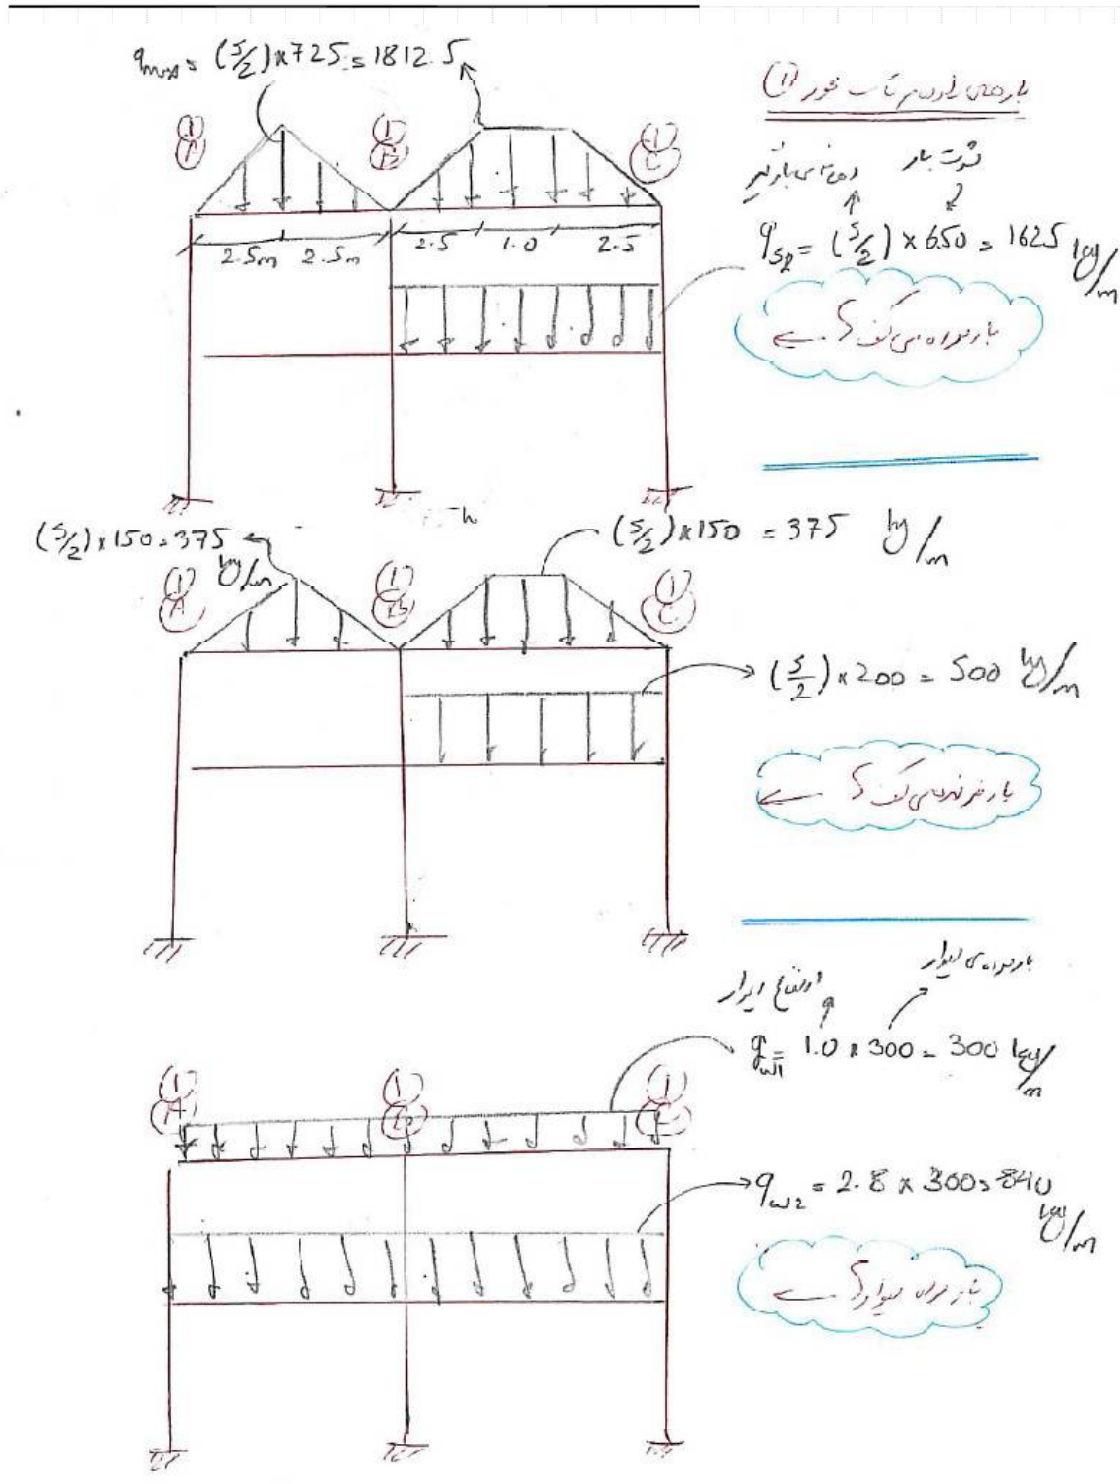 q_max = (5/2) × 725 = 1812.5
بارهای وارد بر قاب محور (1)
شدت بار
دهانه‌ی بارگیر
1 A
1 B
1 C
q_s2 = (5/2) × 650 = 1625 kg/m
2.5m 2.5m 2.5 1.0 2.5
بار مرده‌ی کف ؟
(5/2) × 150 = 375 kg/m
(5/2) × 150 = 375 kg/m
1 A
1 B
1 C
(5/2) × 200 = 500 kg/m
بار زنده‌ی کف ؟
بار مرده‌ی دیوار
ارتفاع دیوار
q_w1 = 1.0 × 300 = 300 kg/m
1 A
1 B
1 C
q_w2 = 2.8 × 300 = 840 kg/m
بار مرده دیوار ؟